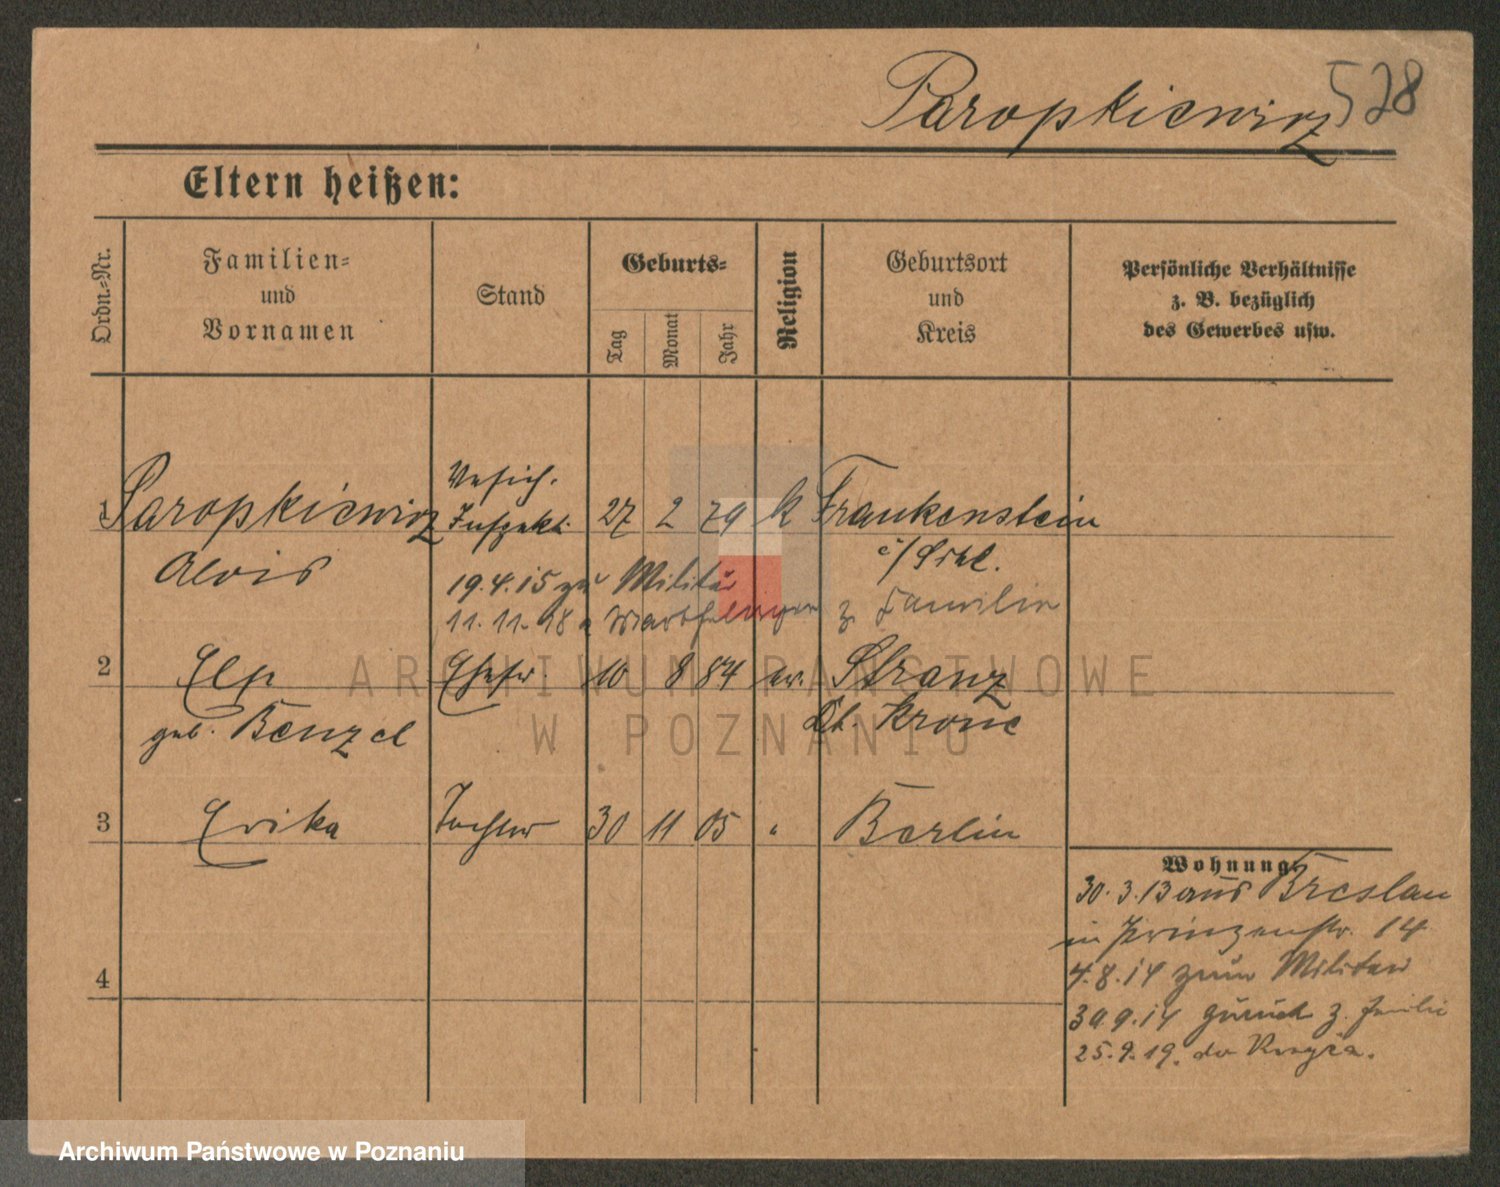 Paropkiewicz 528
Eltern heißen:
Ordn.-Nr.
Familien-
und
Vornamen
Stand
Geburts-
Tag
Monat
Jahr
Religion
Geburtsort
und
Kreis
Persönliche Verhältnisse
z. B. bezüglich
des Gewerbes usw.
Versich.
1 Paropkiewicz Inspekt. 27 2 79 k Frankenstein
Alois
i/Schl.
19.4.15 zu Militär
11.11.18 z Familie
2 Ehefr. 10 8 84 ev. Stranz
geb. Benzel Dt. Krone
3 Erika Tochter 30 11 05 " Berlin
4
Wohnung:
30.3.13 aus Breslau
in Prinzenstr. 14
4.8.14 zum Militär
30.9.14 zurück z. Familie
25.9.19. do
ARCHIWUM PAŃSTWOWE
W POZNANIU
Archiwum Państwowe w Poznaniu